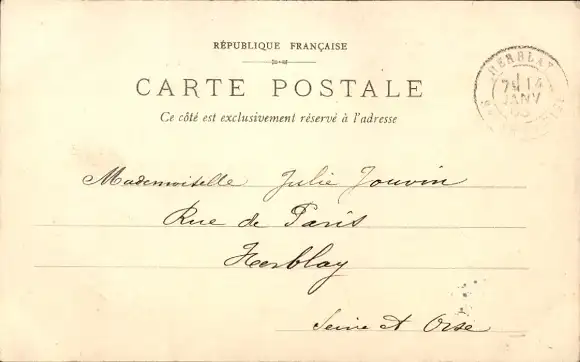 RÉPUBLIQUE FRANÇAISE
CARTE POSTALE
Ce côté est exclusivement réservé à l'adresse
HERBLAY
14
JANV
Mademoiselle Julie Jouvin
Rue de Paris
Herblay
Seine et Oise